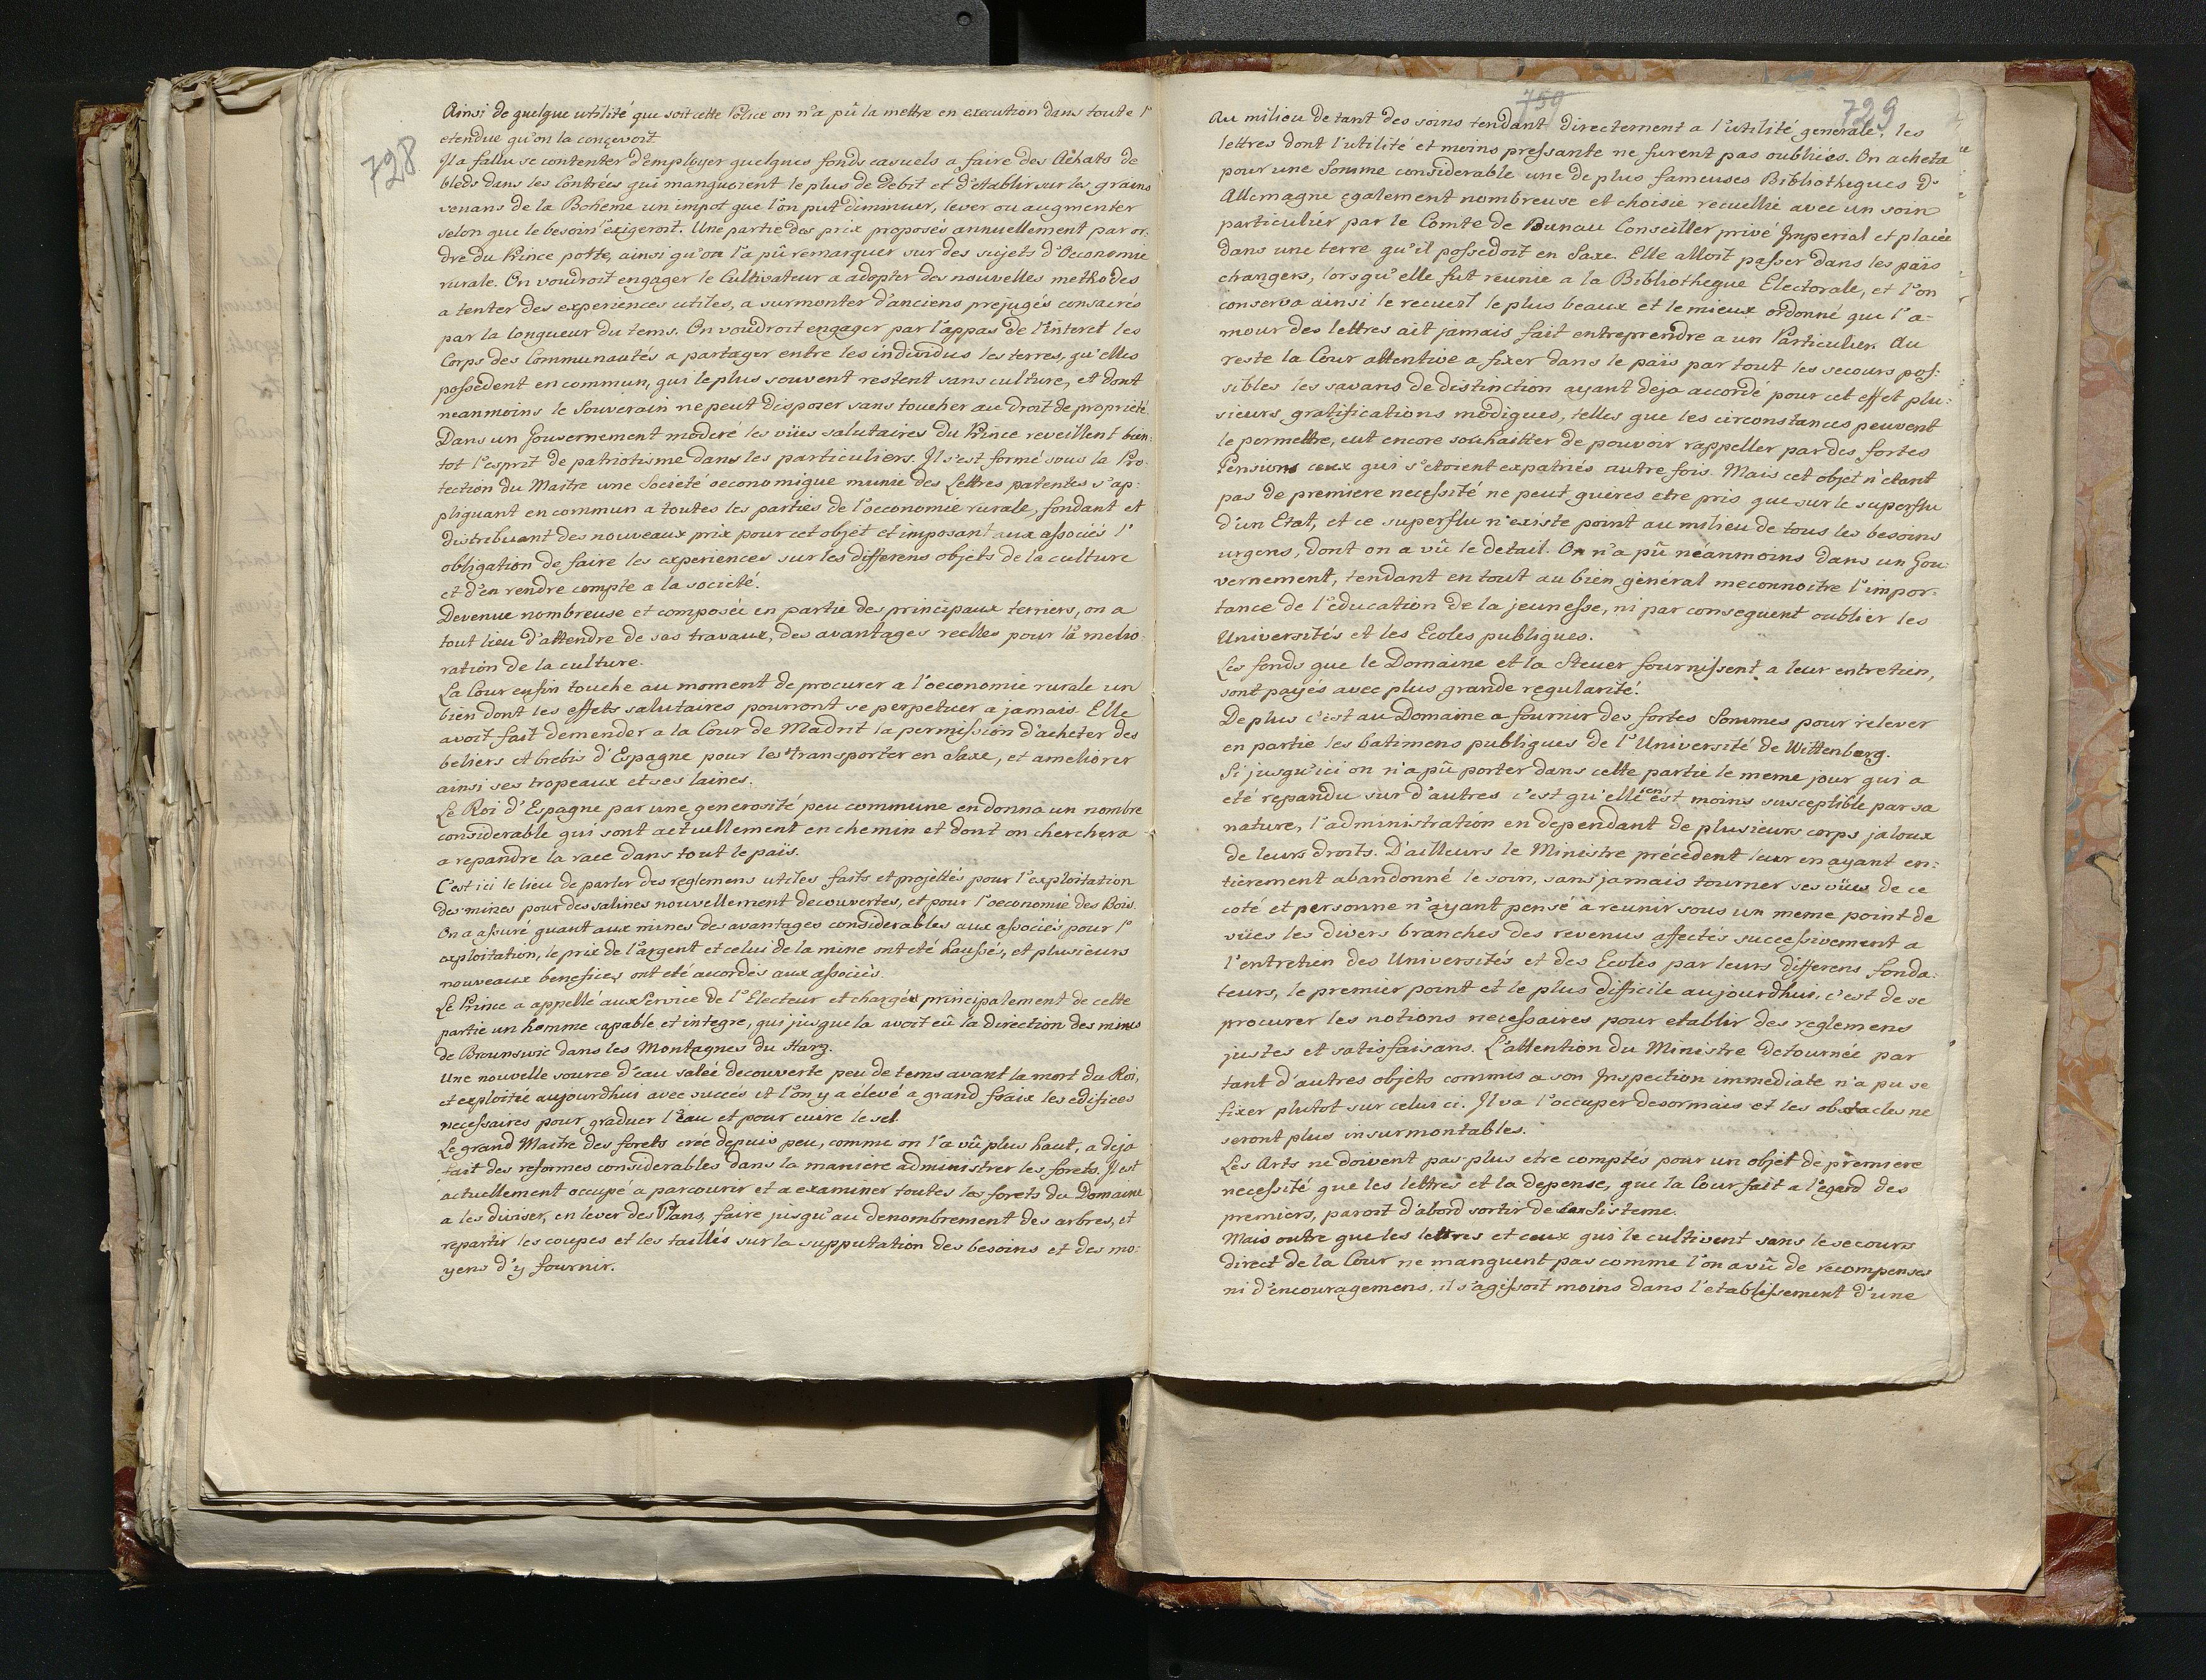 728
Ainsi de quelque utilité que soit cette Police on n'a pû la mettre en execution dans toute l'
etendue qu'on la conçevoit
Il a fallu se contenter d'employer quelques fonds casuels a faire des Achats de
bleds dans les Contrées qui manquoient le plus de debit et d'etablir sur les grains
venans de la Boheme un impot que l'on put diminuer, lever ou augmenter
selon que le besoin l'exigeroit. Une partie des prix proposés annuellement par or-
dre du Prince porte, ainsi qu'on l'a pû remarquer sur des sujets d'Oeconomie
rurale. On voudroit engager le Cultivateur a adopter des nouvelles methodes
a tenter des experiences utiles, a surmonter d'anciens prejugés consacrés
par la longueur du tems. On voudroit engager par l'appas de l'Interet les
Corps des Communautés a partager entre les individus les terres, qu'elles
possedent en commun, qui le plus souvent restent sans culture, et dont
neanmoins le Souverain ne peut disposer sans toucher au droit de propriété.
Dans un Gouvernement moderé les vües salutaires du Prince reveillent bien-
tot l'esprit de patriotisme dans les particuliers. Il s'est formé sous la Pro-
tection du Maitre une Societé oeconomique munie des Lettres patentes s'ap-
pliquant en commun a toutes les parties de l'oeconomie rurale, fondant et
distribuant des nouveaux prix pour cet objet et imposant aux associés l'
obligation de faire les experiences sur les differens objets de la culture
et d'en rendre compte a la societé.
Devenue nombreuse et composée en partie des principaux terriers, on a
tout lieu d'attendre de ses travaux, des avantages reelles pour la melio-
ration de la culture.
La Cour enfin touche au moment de procurer a l'oeconomie rurale un
bien dont les effets salutaires pourront se perpetuer a jamais. Elle
avoit fait demender a la Cour de Madrit la permission d'acheter des
beliers et brebis d'Espagne pour les transporter en Saxe, et ameliorer
ainsi ses tropeaux et ses laines.
Le Roi d'Espagne par une generosité peu commune en donna un nombre
considerable qui sont actuellement en chemin et dont on cherchera
a repandre la race dans tout le païs.
C'est ici le lieu de parler des reglemens utiles faits et projettés pour l'exploitation
des mines pour des salines nouvellement decouvertes, et pour l'oeconomie des Bois.
On a assuré quant aux mines des avantages considerables aux associés pour l'
exploitation, le prix de l'argent et celui de la mine ont eté haussés, et plusieurs
nouveaux benefices ont eté accordés aux associés.
Le Prince a appellé aux Service de l'Electeur et chargée principalement de cette
partie un homme capable et integre, qui jusque la avoit eû la direction des mines
de Brounswic dans les Montagnes du Harz.
Une nouvelle source d'eau salée decouverte peu de tems avant la mort du Roi,
et exploitée aujourdhui avec succès et l'on y a élevé a grand fraix les edifices
necessaires pour graduer l'Eau et pour cuire le sel.
Le grand Maitre des forets crée depuis peu, comme on l'a vû plus haut, a deja
fait des reformes considerables dans la maniere administrer les forets. Il est
actuellement occupé a parcourir et a examiner toutes les forets du Domaine
a les diviser, en lever des Plans, faire jusqu'au denombrement des arbres, et
repartir les coupes et les taillés sur la supputation des besoins et des mo-
yens d'y fournir.
759
729
Au milieu de tant des soins tendant directement a l'utilité generale, les
lettres dont l'utilité et moins pressante ne furent pas oubliées. On acheta
pour une Somme considerable une de plus fameuses Bibliotheques d'
Allemagne egalement nombreuse et choisie recuellie avec un soin
particulier par le Comte de Bunau Conseiller privé Imperial et placée
dans une terre qu'il possedoit en Saxe. Elle alloit passer dans les païs
changers, lorsqu'elle fut reunie a la Bibliotheque Electorale, et l'on
conserva ainsi le recueil le plus beaux et le mieux ordonné que l'a-
mour des lettres ait jamais fait entreprendre a un Particulier. Au
reste la Cour attentive a fixer dans le païs par tout les secours pos-
sibles les savans de distinction ayant deja accordé pour cet effet plu-
sieurs gratifications modiques, telles que les circonstances peuvent
le permettre, eut encore souhaitter de pouvoir rappeller par des fortes
Pensions ceux qui s'etoient expatriés autre fois. Mais cet objet n'etant
pas de premiere necessité ne peut guères etre pris que sur le superflu
d'un Etat, et ce superflu n'existe point au milieu de tous les besoins
urgens, dont on a vû le detail. On n'a pû néanmoins dans un Gou-
vernement, tendant en tout au bien général meconnoitre l'impor-
tance de l'éducation de la jeunesse, ni par consequent oublier les
Universités et les Ecoles publiques.
Les fonds que le Domaine et la Steuer fournissent a leur entretien,
sont payés avec plus grande regularité.
De plus c'est au Domaine a fournir des fortes Sommes pour relever
en partie les batimens publiques de l'Université de Wittenberg.
Si jusqu'ici on n'a pû porter dans cette partie le meme jour qui a
eté repandu sur d'autres c'est qu'elle en est moins susceptible par sa
nature, l'administration en dependant de plusieurs corps jaloux
de leurs droits. D'ailleurs le Ministre précedent leur en ayant en-
tièrement abandonné le soin, sans jamais tourner ses vües de ce
coté et personne n'ayant pensé a reunir sous un meme point de
vües les divers branches des revenus affectés successivement a
l'entretien des Universités et des Ecoles par leurs differens fonda-
teurs, le premier point et le plus difficile aujourdhui c'est de se
procurer les notions necessaires pour etablir des reglemens
justes et satisfaisans. L'attention du Ministre detournée par
tant d'autres objets commis a son Inspection immediate n'a pu se
fixer plutot sur celui ci. Il va l'occuper desormais et les obstacles ne
seront plus insurmontables.
Les Arts ne doivent pas plus etre comptés pour un objet de premiere
necessité que les lettres et la depense, que la Cour fait a l'egard des
premiers, paroit d'abord sortir de Sisteme.
Mais outre que les lettres et ceux qui le cultivent sans le secours
direct de la Cour ne manquent pas comme l'on a vû de recompenses
ni d'encouragemens, il s'agissoit moins dans l'etablissement d'une